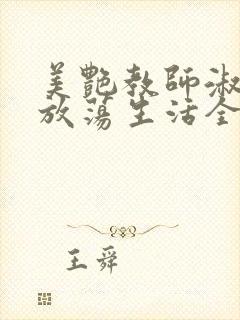 美艷教師淑
放蕩生活全
王舜